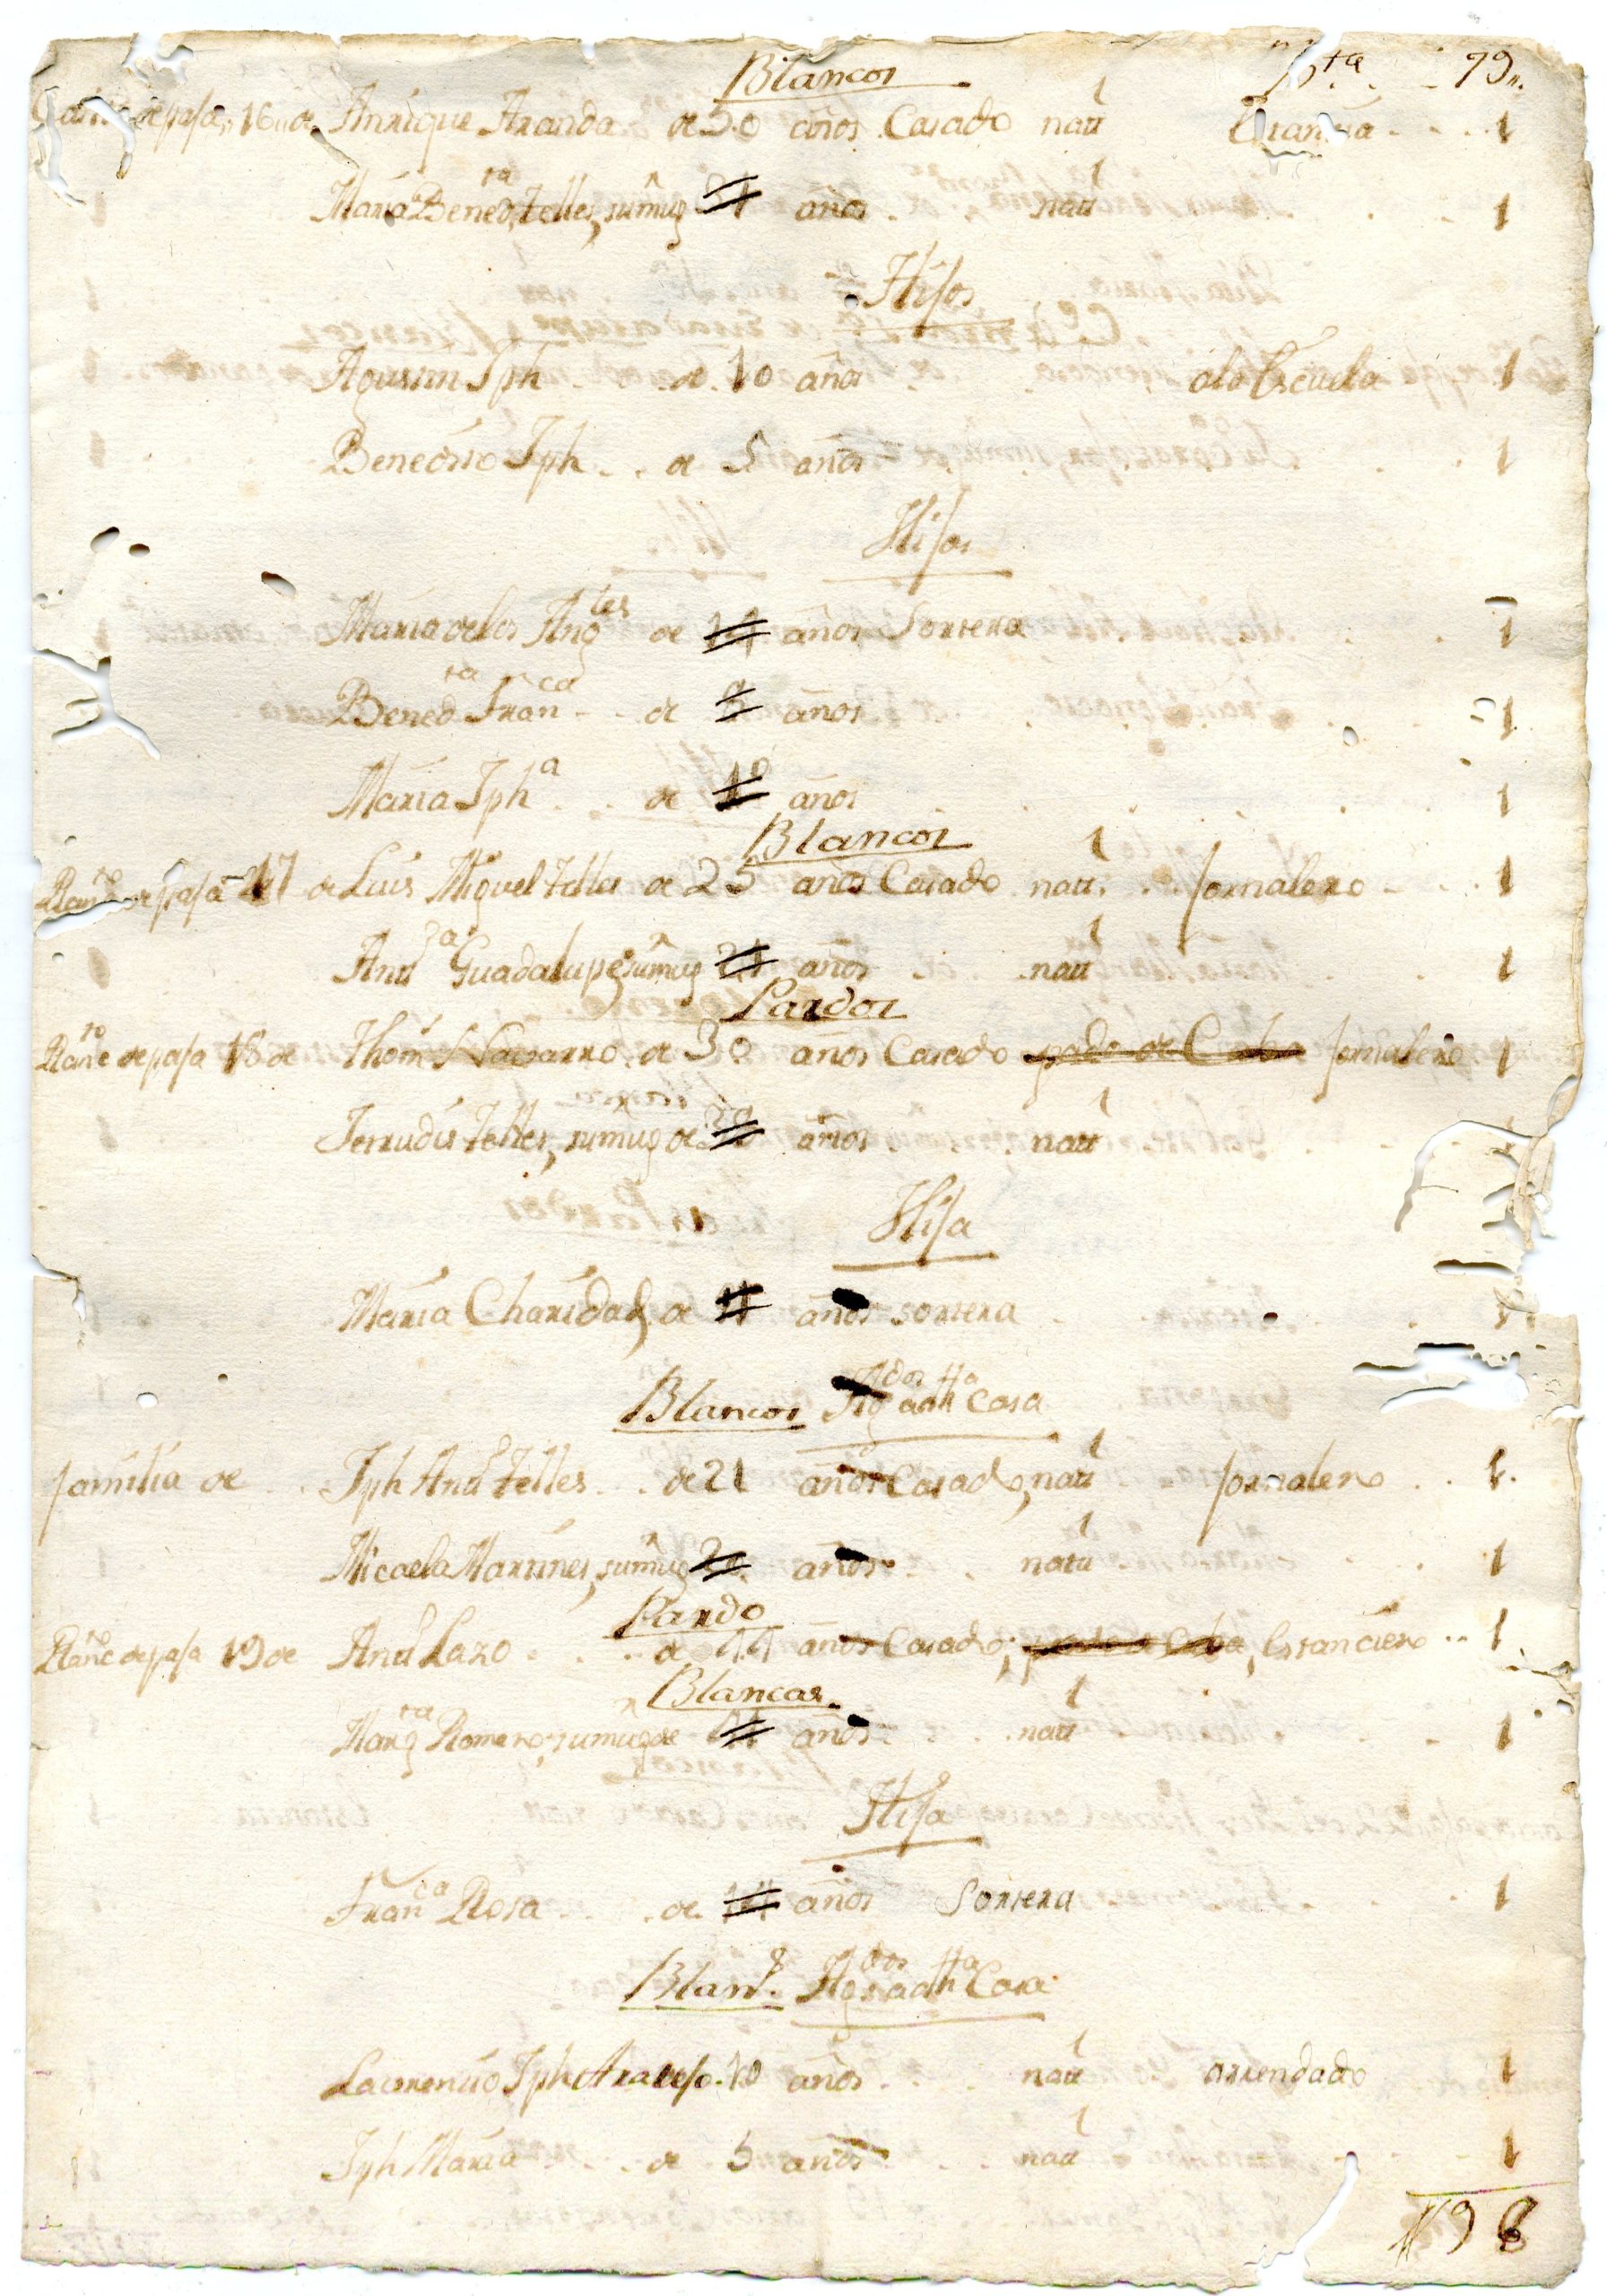 Blancos
ta 79,,
de paja 16 de Anrique Aranda de 50 años Casado natl 1
Maria Benedta telles, su mug años natl 1
Hijos
Agustin Jph de 10 años a la Escuela 1
Benedito Jph de 5 años 1
Hijos
Maria de los Angles de años Soltera 1
Benedta Franca de años 1
Maria Jpha de 10 años 1
Blancos
Ranco de paja 17 de Luis Miguel telles de 25 años Casado natl jornalero 1
Anta Guadalupe, su mug años natl 1
Pardos
Ranco de paja 18 de Thoms Navarro de 30 años Casado pardo de Cuba jornalero 1
Jetrudis telles, su mug de años natl
Hija
Maria Charidad, de años soltera
Blancos Agdos a dha Casa
familia de Jph Anto telles de 21 años Casado, natl jornalero 1
Micaela Martines, su mug años natl 1
Pardo
Ranco de paja 19 de Anto Lazo de 44 años Casado, Estanciero 1
Blancas
Margta Romero, su mug de años natl 1
Hija
Franca Rosa de años Soltera 1
Blans. Agdos a dha Casa
Laurensio Jph de 10 años natl arrendado 1
Jph Maria de 5 años natl 1
198